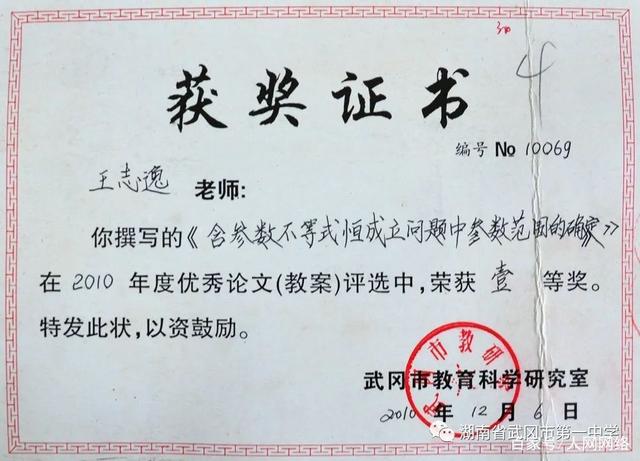 4
获奖证书
编号 No 10069
王志逸 老师:
你撰写的《含参数不等式恒成立问题中参数范围的确定》
在 2010 年度优秀论文(教案)评选中,荣获 壹 等奖。
特发此状,以资鼓励。
武冈市教育科学研究室
2010 年 12 月 6 日
湖南省武冈市第一中学
百家号/人网网络